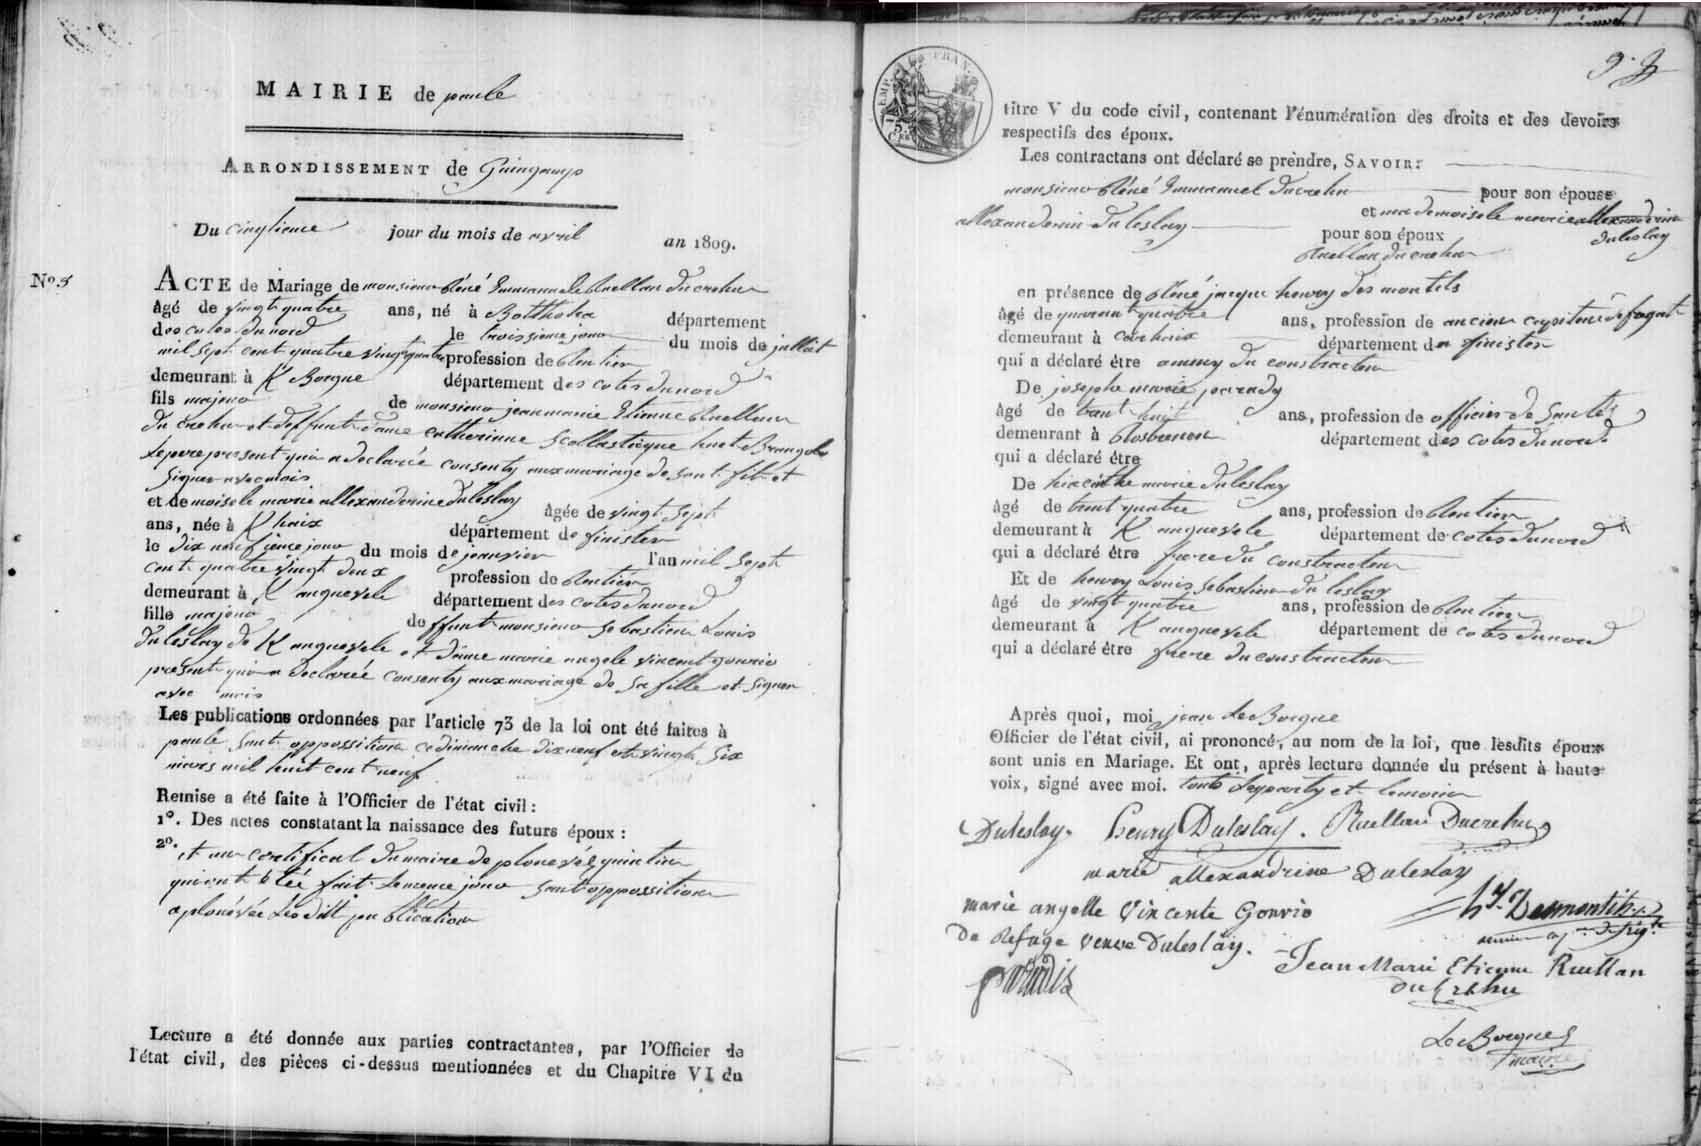 MAIRIE de paule
ARRONDISSEMENT de Guingamp
Du cinqlieme jour du mois de avril an 1809.
N.o 5
ACTE de Mariage de monsieur Réné Emmanuel Ruellan Ducrehu
âgé de vingt quatre ans, né à Botthoha département
des cotes du nord le troissieme jour du mois de juillet
mil sept cent quatre vingt quatre profession de Rentier
demeurant à K Borgne département des cotes du nord
fils majeur de monsieur jean marie Etienne Ruellan
du crehu et deffunte dame catherinne Scollastique huet
Le pere present qui a declarée consenty aux mariage de sont fils et
Signer avec mois
et demoisele marie allexanderine duleslay âgée de vingt sept
ans, née à K haix département de finister
le dix neufieme jour du mois de jeanvier l'an mil sept
cent quatre vingt deux profession de Rentier
demeurant à K anguevele département des cotes du nord
fille majeur de deffunt monsieur Sebastien Louis
Duleslay de K anguevele et dame marie angele vincent gouvrio
presente qui a declarée consenty aux mariage de sa fille et signer
avec mois
Les publications ordonnées par l'article 73 de la loi ont été faites à
paule sant oppossition ce dimanche dix neuf et vingt six
mars mil huit cent neuf
Remise a été faite à l'Officier de l'état civil :
1o. Des actes constatant la naissance des futurs époux :
2o. et un certificat du maire de plonevéz quintin
qui ont étée fait le meme jour sant oppossition
a plonévée les ditt publication
Lecture a été donnée aux parties contractantes, par l'Officier de
l'état civil, des pièces ci-dessus mentionnées et du Chapitre VI du
titre V du code civil, contenant l'énumération des droits et des devoirs
respectifs des époux.
Les contractans ont déclaré se prendre, SAVOIR:
monsieur Réné Emmanuel Ducrehu pour son épouse
et mademoisele marie allexanderine
allexanderin duleslay duleslay
pour son époux
Ruellan du crehu
en présence de Réné jacque henry des montils
âgé de quarant quatre ans, profession de ancien capitene de fregat
demeurant à carhaix département du finister
qui a déclaré être ammy du constracteur
De josephe marie parady
âgé de trant huit ans, profession de officier de Santé
demeurant à Rostrenen département des cotes du nord
qui a déclaré être
De hiacinthe marie duleslay
âgé de trant quatre ans, profession de Rentier
demeurant à K anguevele département de cotes du nord
qui a déclaré être frere du constracteur
Et de henry Louis Sebastien du leslay
âgé de vingt quatre ans, profession de Rentier
demeurant à K anguevele département de cotes du nord
qui a déclaré être frere du constracteur
Après quoi, moi jean Le Borgne
Officier de l'état civil, ai prononcé, au nom de la loi, que lesdits époux
sont unis en Mariage. Et ont, après lecture donnée du présent à haute
voix, signé avec moi. tout les party et temoin
Duleslay. henry Duleslay. Ruellan Ducrehu
marie allexandrine Duleslay
marie angelle Vincente Gouvrio hy. Desmontils
De Refuge veuve Duleslay. ancien cap.ne de frég.te
paradis Jean Marie Etienne Ruellan
du Crehu
Le Borgne
maire